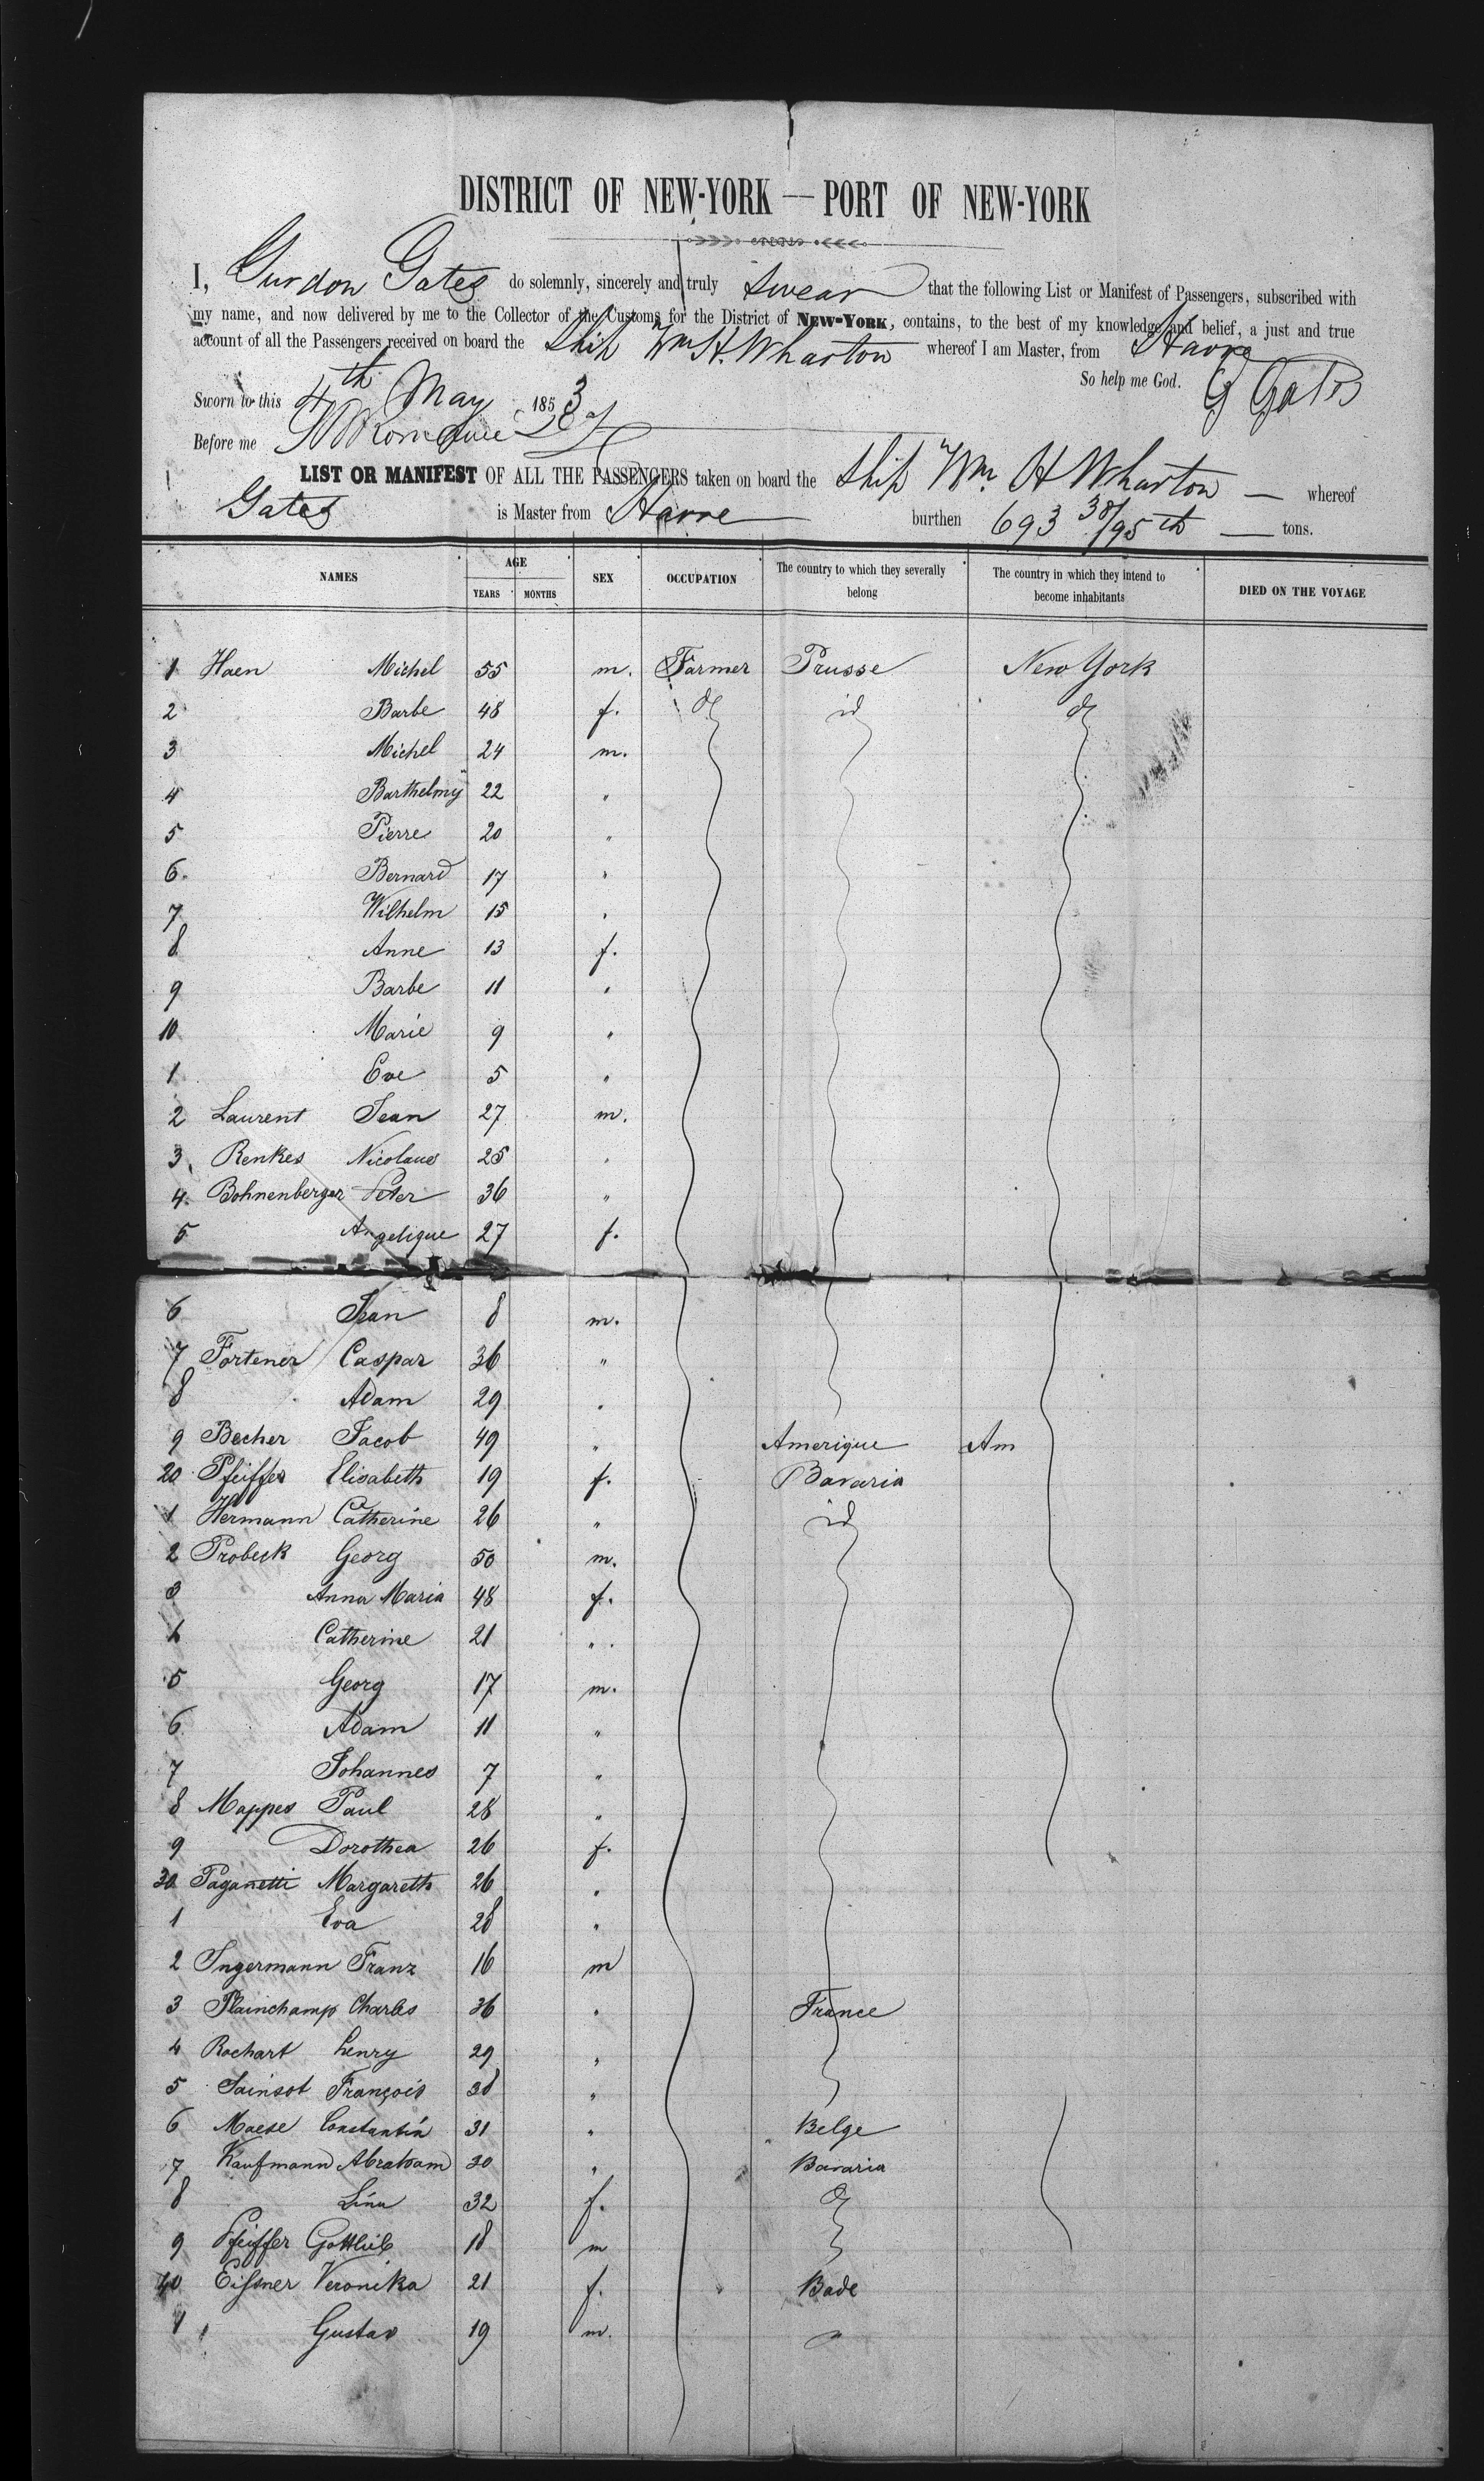 DISTRICT OF NEW-YORK — PORT OF NEW-YORK
I, Gurdon Gates do solemnly, sincerely and truly swear that the following List or Manifest of Passengers, subscribed with
my name, and now delivered by me to the Collector of the Customs for the District of NEW-YORK, contains, to the best of my knowledge and belief, a just and true
account of all the Passengers received on board the Ship Wm H. Wharton whereof I am Master, from Havre
So help me God. G Gates
Sworn to this 4th May 1853
Before me
LIST OR MANIFEST OF ALL THE PASSENGERS taken on board the Ship Wm. H Wharton — whereof
Gates is Master from Havre burthen 693 38/95th — tons.
NAMES AGE YEARS MONTHS SEX OCCUPATION The country to which they severally belong The country in which they intend to become inhabitants DIED ON THE VOYAGE
1 Haen Michel 55 m. Farmer Prusse New York
2 Barbe 48 f. do id do
3 Michel 24 m.
4 Barthelmy 22 "
5 Pierre 20 "
6. Bernard 17 "
7 Wilhelm 15 "
8 Anne 13 f.
9 Barbe 11 "
10 Marie 9 "
1 Eve 5 "
2 Laurent Jean 27 m.
3 Renkes Nicolaus 25 "
4. Bohnenberger Peter 36 "
5 Angelique 27 f.
6 Jean 8 m.
7 Fortener Caspar 36 "
8 Adam 29 "
9 Becher Jacob 49 " Amerique Am
20 Pfeiffer Elisabeth 19 f. Bavaria
1 Hermann Catherine 26 " id
2 Probeck Georg 50 m.
3 Anna Maria 48 f.
4 Catherine 21 "
5 Georg 17 m.
6 Adam 11 "
7 Johannes 7 "
8 Mappes Paul 28 "
9 Dorothea 26 f.
30 Paganetti Margareth 26 "
1 Eva 28 "
2 Ingermann Franz 16 m
3 Plainchamp Charles 36 " France
4 Rochart henry 29 "
5 Sainsot François 38 "
6 Maese Constantin 31 " Belge
7 Kaufmann Abraham 30 " Bavaria
8 Lina 32 f. do
9 Pfeiffer Gottlieb 18 m
40 Eissner Veronika 21 f. Bade
1 Gustav 19 m.